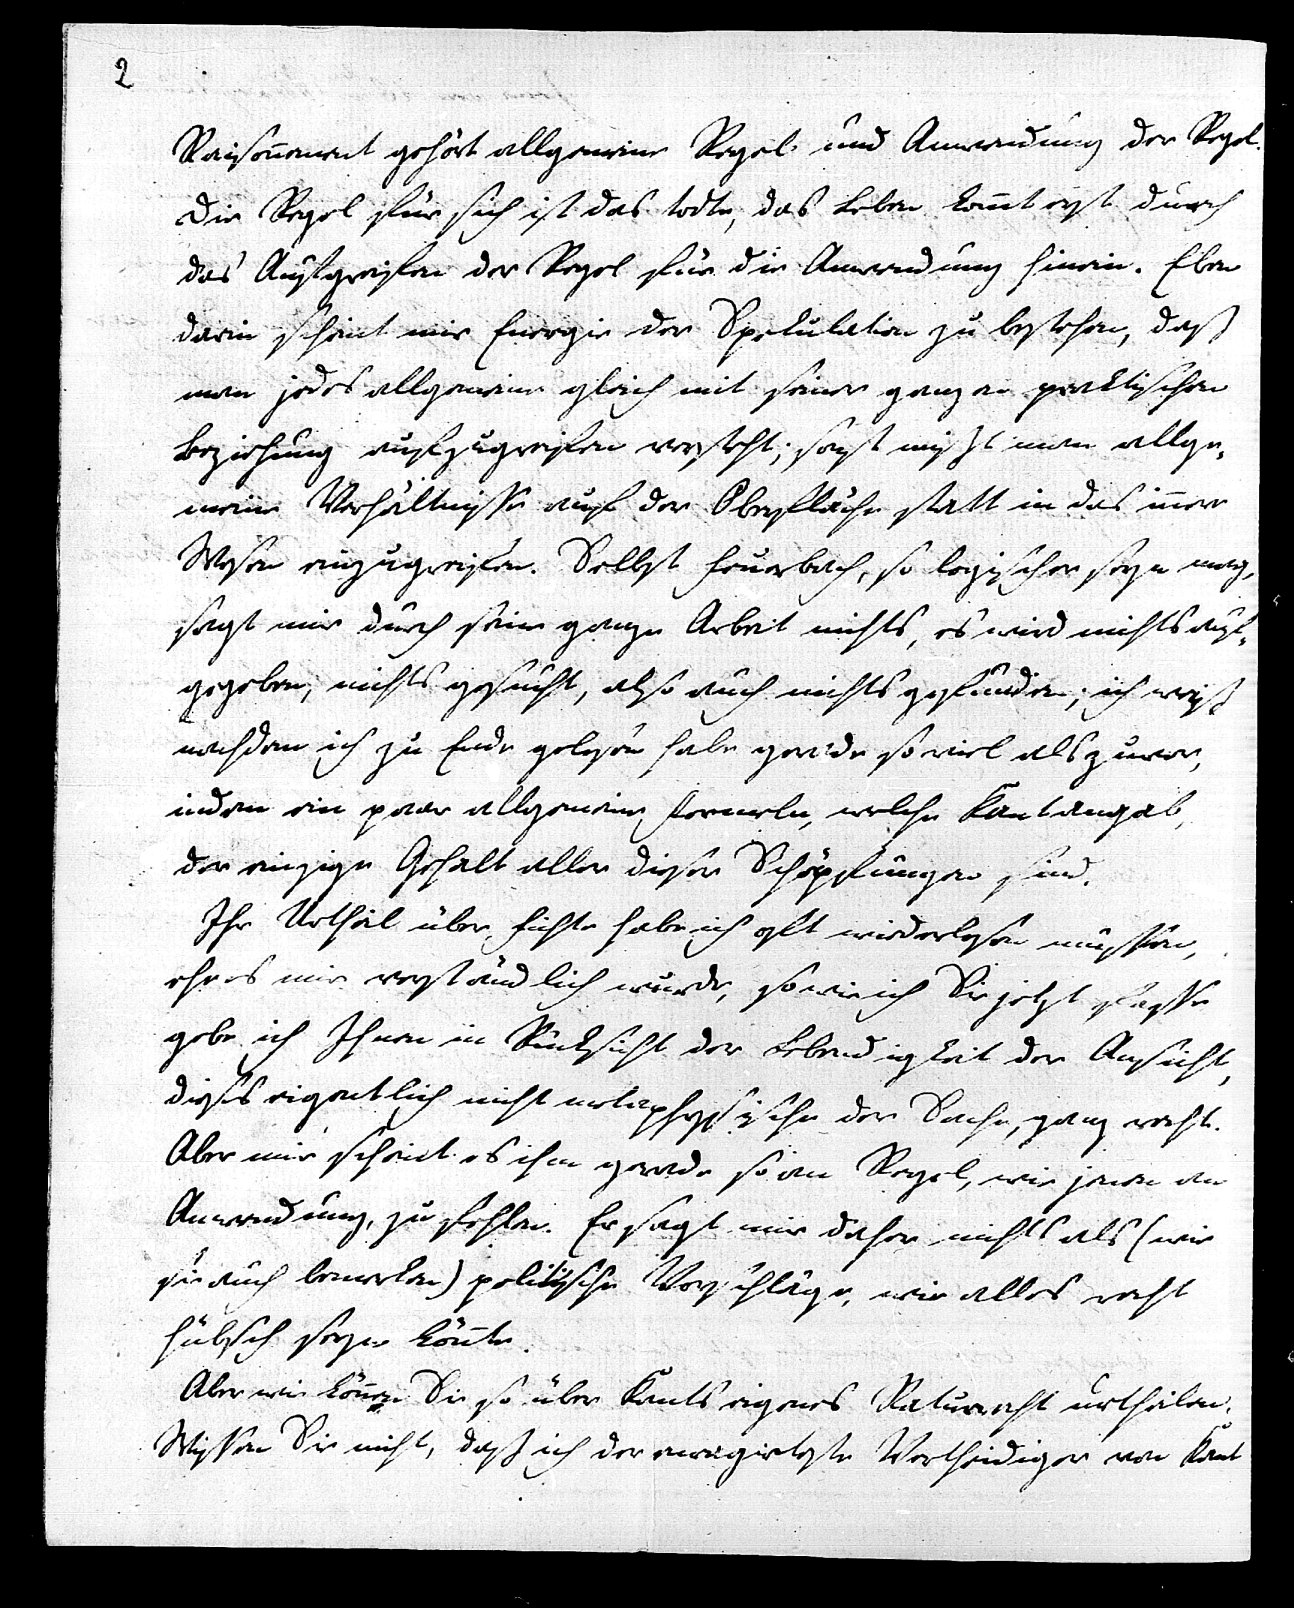 2
Raisonnement gehört allgemeine Regel und Anwendung der Regel.
Die Regel für sich ist das todte, das Leben kom̄t erst durch
das Aufgreifen der Regel für die Anwendung hinein. Eben
darin scheint mir Energie der Spekulation zu bestehen, daß
man jedes allgemeine gleich mit seiner ganzen praktischen
Beziehung aufzugreifen versteht; sonst mißt man allge-
meine Verhältnisse auf der Oberfläche statt in das in̄ere
Wesen einzugreifen. Selbst Feuerbach, so logischer seyn mag,
sagt mir durch seine ganze Arbeit nichts, es wird nichts auf-
gegeben, nichts gesucht, also auch nichts gefunden; ich weiß
nachdem ich zu Ende gelesen habe gerade so viel als zuvor,
indem ein paar allgemeine Formeln, welche Kant angab,
der einzige Gehalt aller dieser Schöpfungen sind.
Ihr Urtheil über Fichte habe ich oft wiederlesen müssen,
ehe es mir verständlich wurde, so wie ich Sie jetzt fasse
gebe ich Ihnen in Rücksicht der Lebendigkeit der Ansicht,
dieses eigentlich nicht metaphysische der Sache, ganz recht.
Aber mir scheint es ihm gerade so an Regel, wie jenen an
Anwendung, zu fehlen. Er sagt mir daher nichts als (wie
sie auch bemerken) politische Vorschläge, wie alles recht
hübsch seyn kön̄te.
Aber wie kön̄en Sie so über Kants eigenes Naturrecht urtheilen.
Wissen Sie nicht, daß ich der enragirteste Vertheidiger von Kant